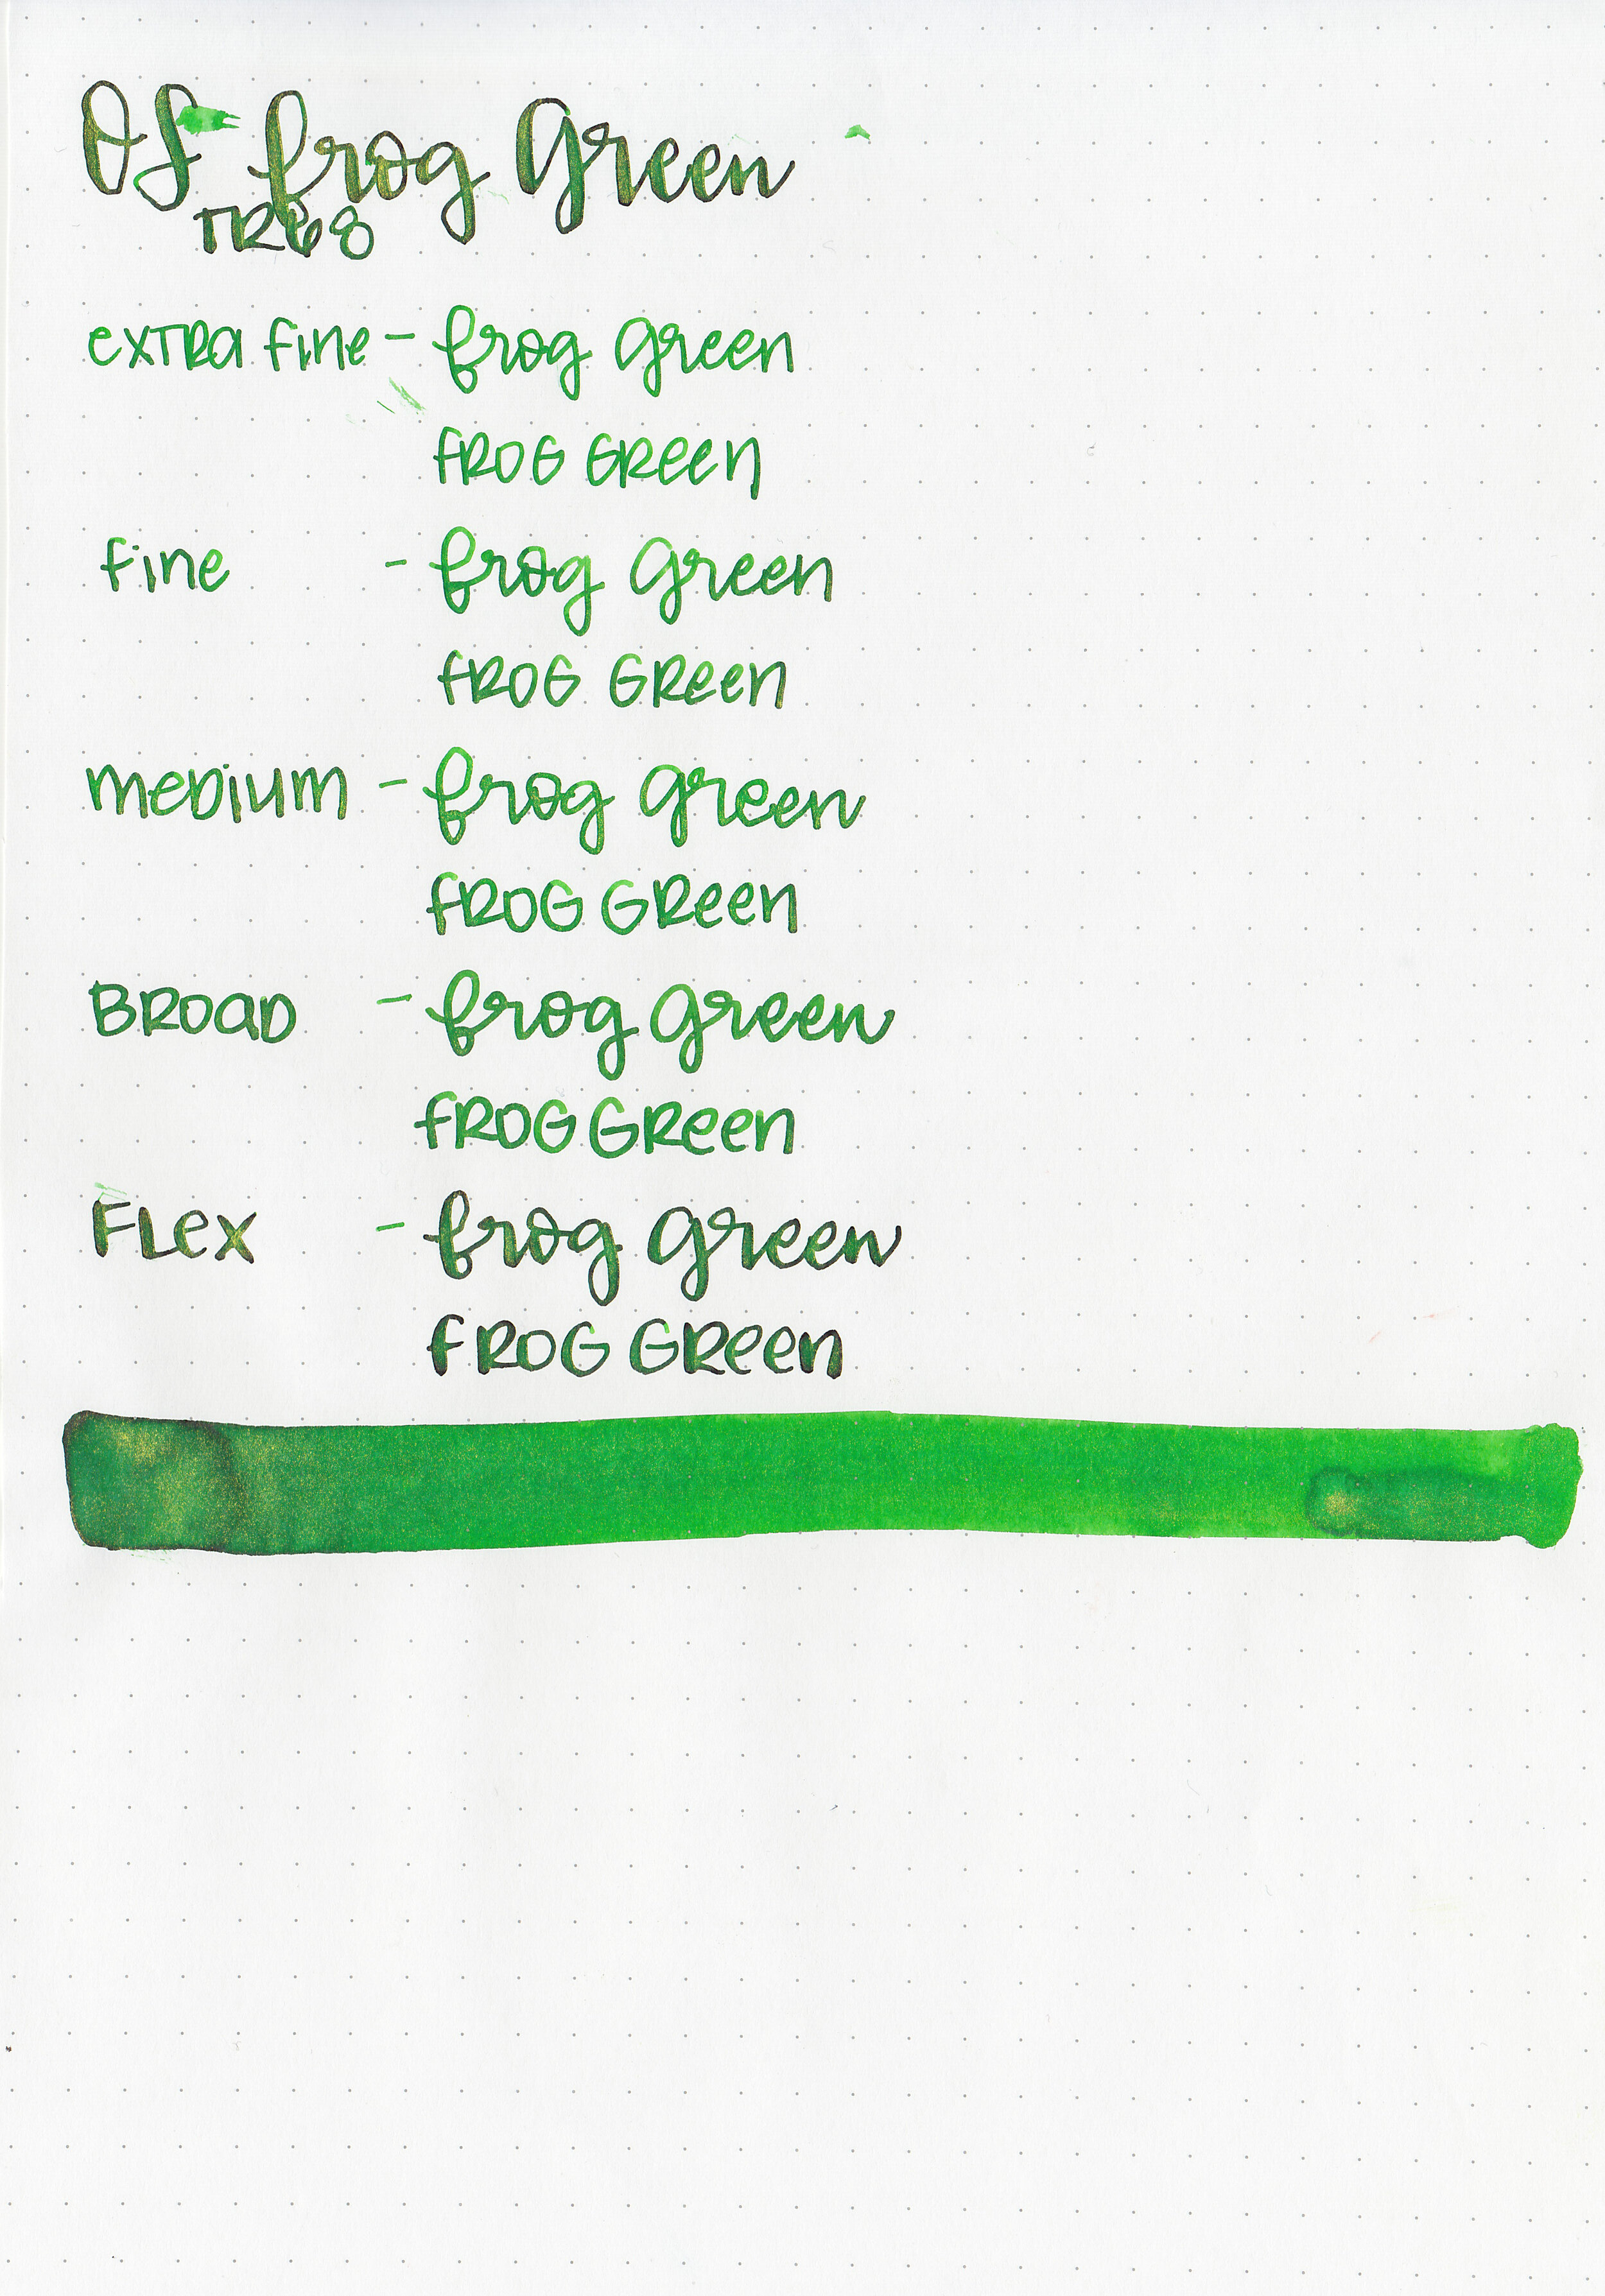 OS frog Green
TR68
extra fine - frog green
FROG GREEN
fine - frog green
FROG GREEN
medium - frog green
FROG GREEN
BROAD - frog green
FROG GREEN
FLEX - frog green
FROG GREEN